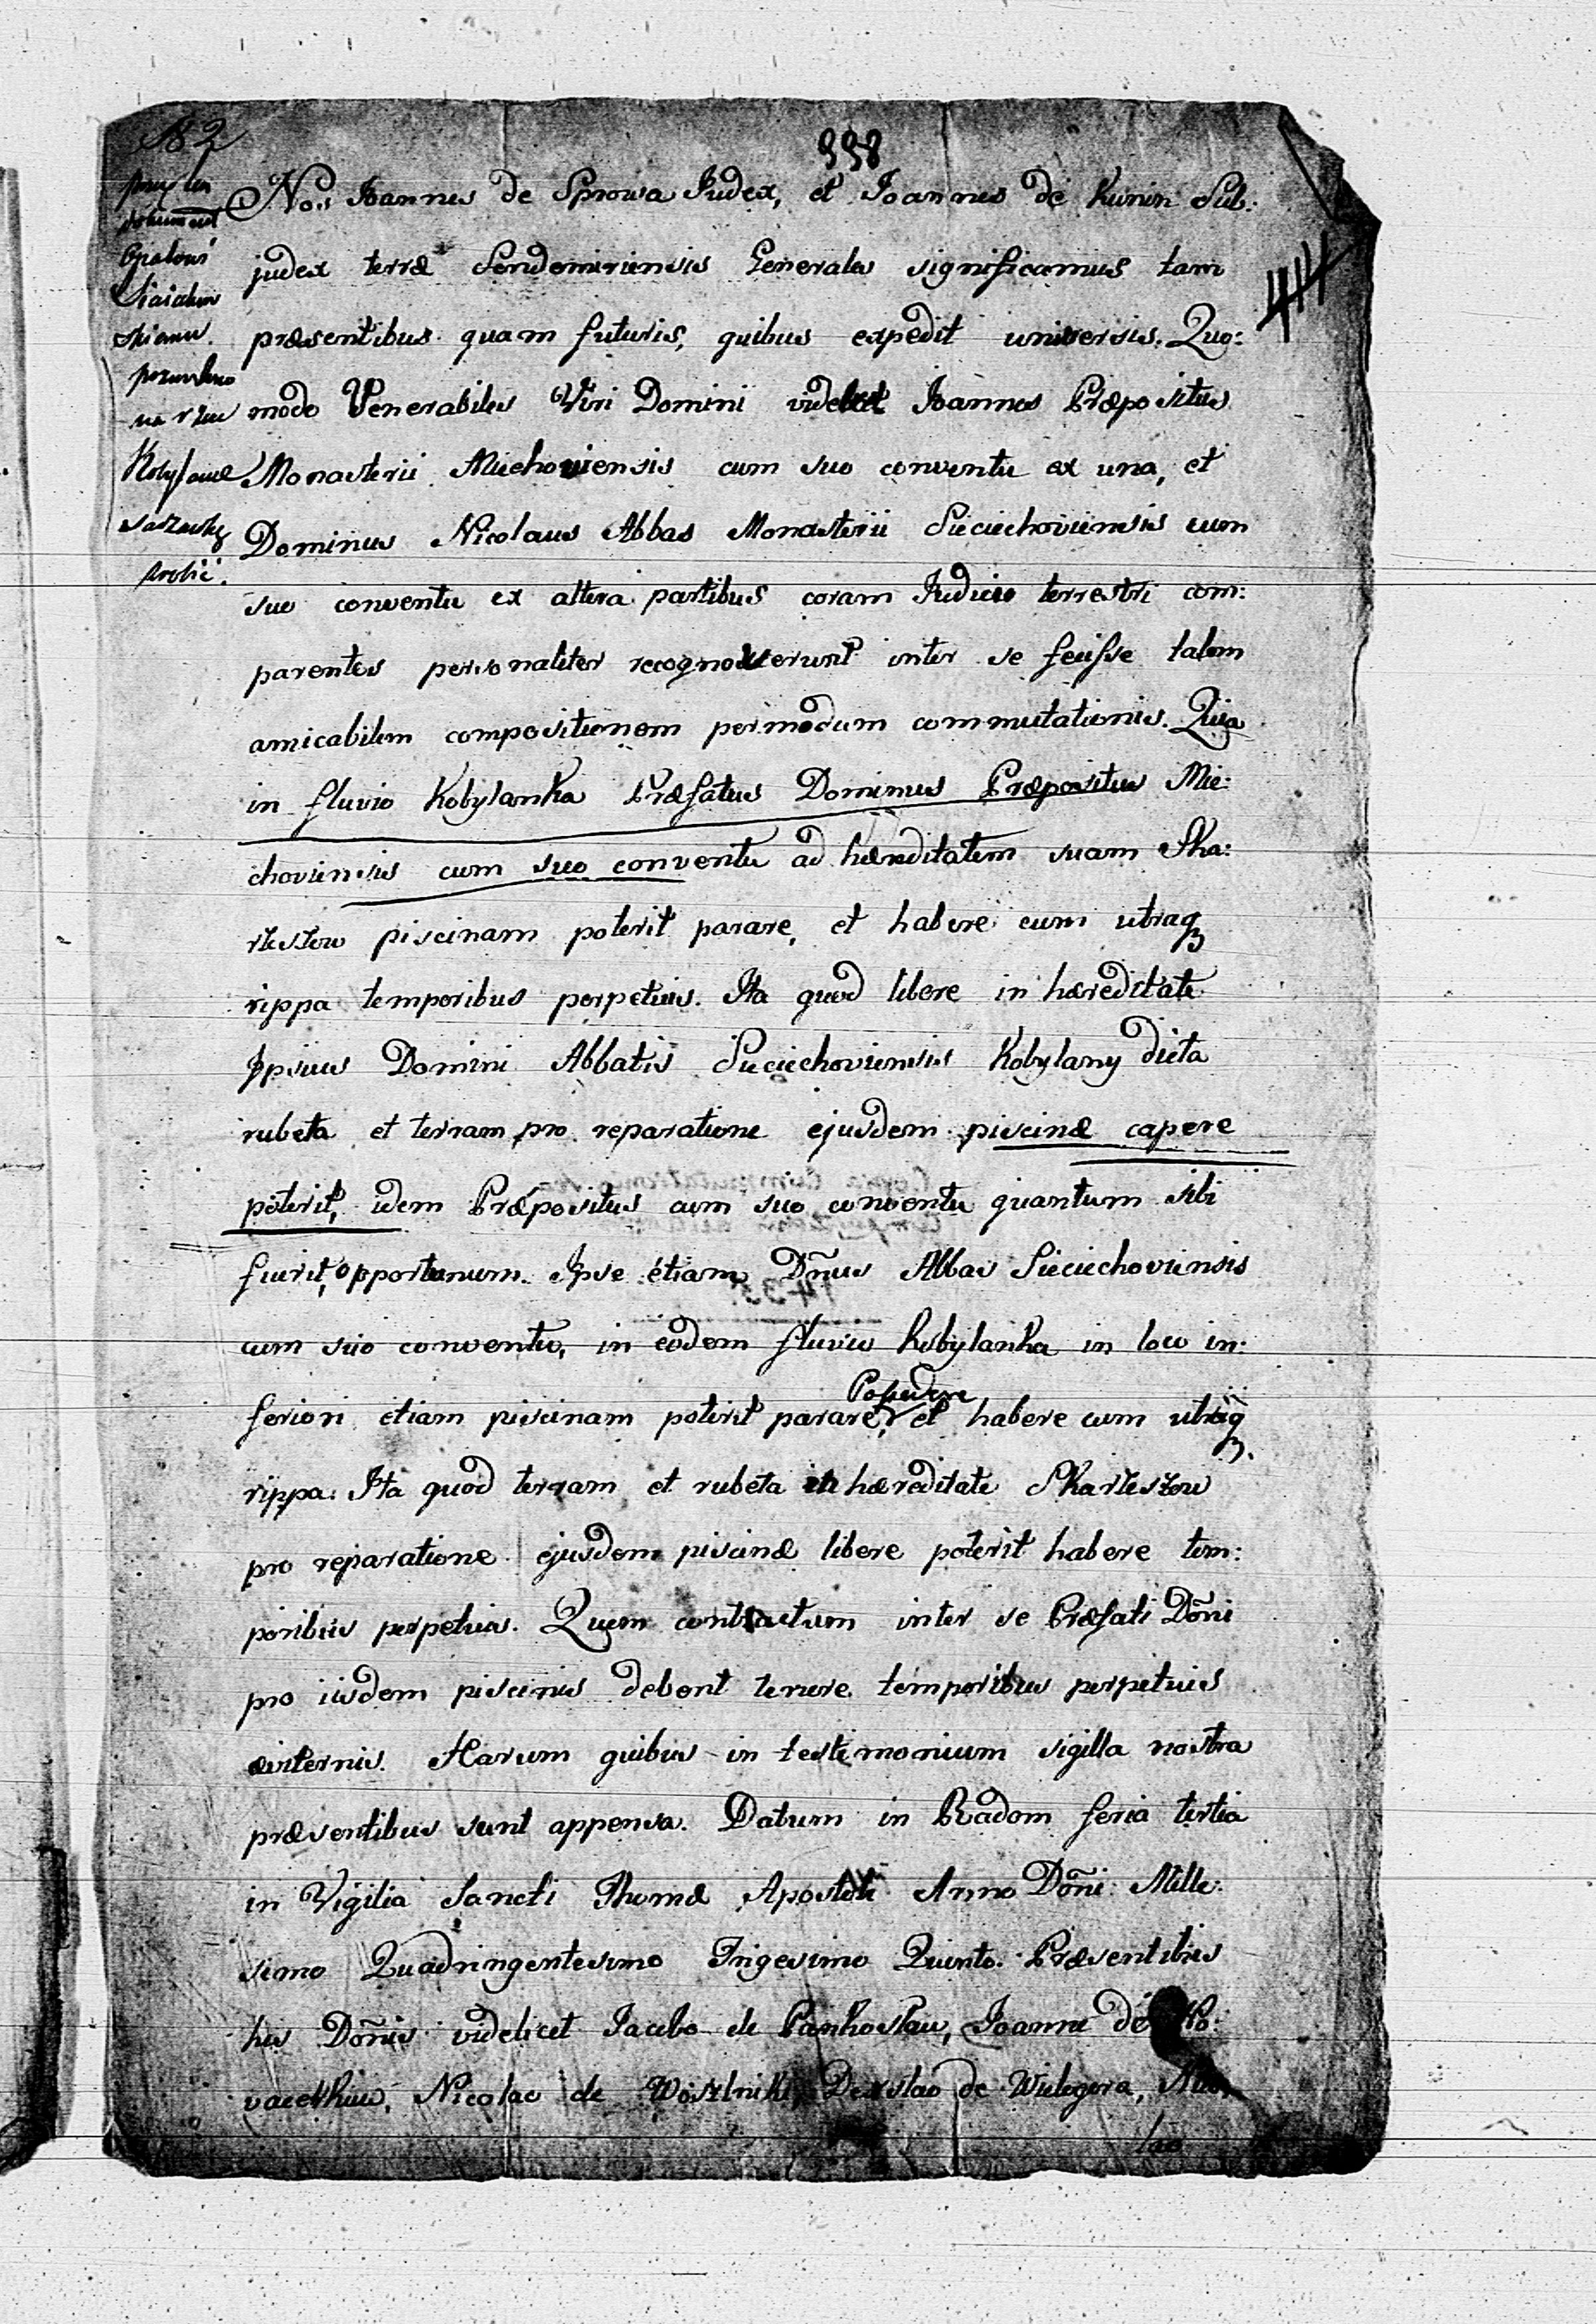 182
998
przy tem
dokument
Opatowi
Sieciechow
skiemu.
pozwolono
na rzece
Kobylance
sadzawkę
zrobić.
Nos Joannes de Sprowa Judex, et Joannes de Kunin Sub:
judex terræ Sendomiriensis Generales significamus tam
præsentibus quam futuris, quibus expedit universis. Quo:
modo Venerabiles Viri Domini videlicet Joannes Præpositus
Monasterii Miechoviensis cum suo conventu ex una, et
Dominus Nicolaus Abbas Monasterii Sieciechoviensis cum
suo conventu ex altera partibus coram Judicio terrestri com:
parentes personaliter recognoverunt inter se fecisse talem
amicabilem compositionem per modum commutationis. Quia
in fluvio Kobylanka Præfatus Dominus Præpositus Mie:
choviensis cum suo conventu ad hæreditatem suam Ska:
rzeszow piscinam poterit parare, et habere cum utraqꝫ
rippa temporibus perpetuis. Ita quod libere in hæreditate
Ipsius Domini Abbatis Sieciechoviensis Kobylany dicta
rubeta et terram pro reparatione ejusdem piscinæ capere
poterit, idem Præpositus cum suo conventu quantum sibi
fuerit opportunum. Ipse etiam Dñus Abbas Sieciechoviensis
cum suo conventu, in eodem fluvio Kobylanka in loco in:
feriori etiam piscinam poterit parare, Possidere et habere cum utraqꝫ.
rippa. Ita quod terram et rubeta in hæreditate Skarzeszow
pro reparatione ejusdem piscinæ libere poterit habere tem:
poribus perpetuis. Quem contractum inter se Præfati Dõni
pro iisdem piscinis debent tenere temporibus perpetuis
æviternis. Harum quibus in testimonium sigilla nostra
præsentibus sunt appensa. Datum in Radom feria tertia
in Vigilia Sancti Thomæ Apostoli Anno Dõni Mille:
simo Quadringentesimo Trigesimo Quinto. Præsentibus
his Dõnis videlicet Jacobo de Pankoslau, Joanne de
Nicolao de Woszlniki, Derslao de Wielegora,
lao